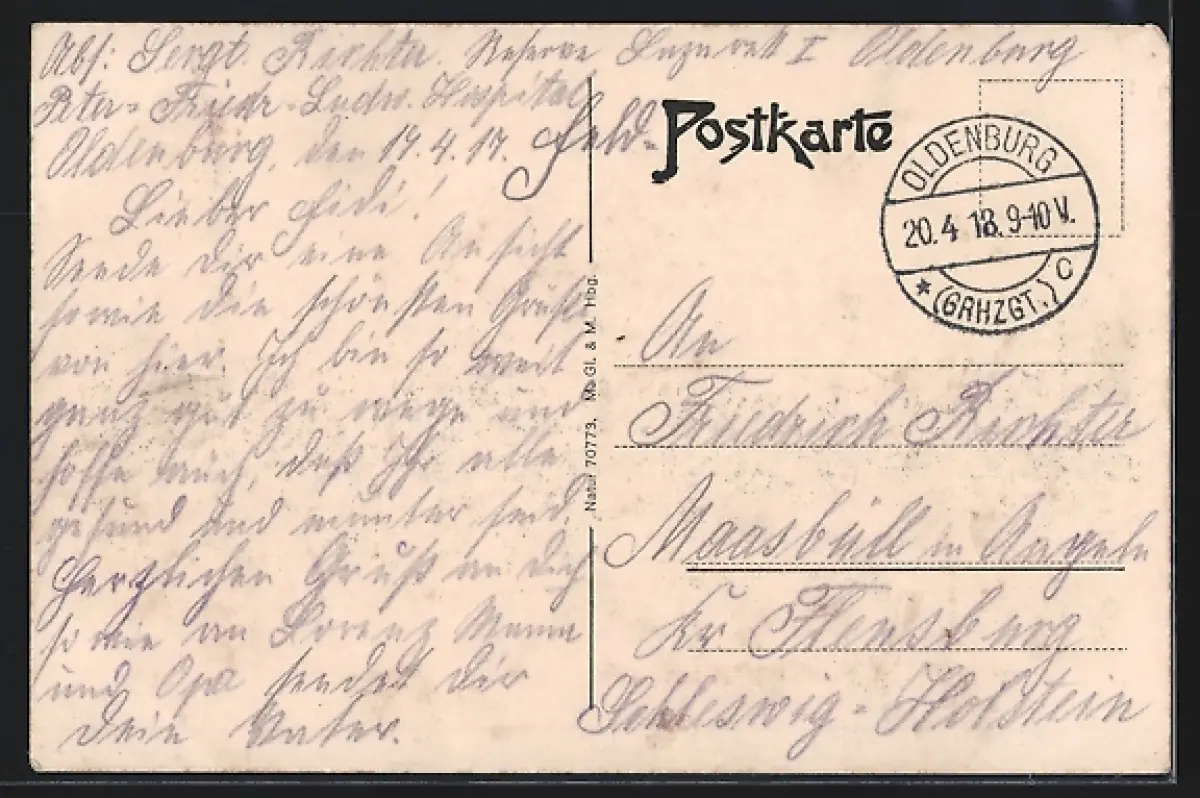 Abs: Sergt. Richter. Reserve Lazarett I Oldenburg
Peter-Friedr-Ludw. Hospital
Oldenburg, den 19.4.18. Feld-
Postkarte
Lieber Fidi!
Sende dir eine Ansicht
sowie die schönsten Grüße
von hier. Ich bin so weit
ganz gut zu wege und
hoffe auch, daß Ihr alle
gesund und munter seid.
Herzlichen Gruß an dich
so wie an Lorenz Mama
und Opa sendet dir
dein Vater.
OLDENBURG
20.4.18.9-10 V.
* (GRHZGT.) C
Natur 70773. M. Gl. & M. Hbg.
An
Friedrich Richter
Maasbüll in Angeln
Kr Flensburg
Schleswig-Holstein